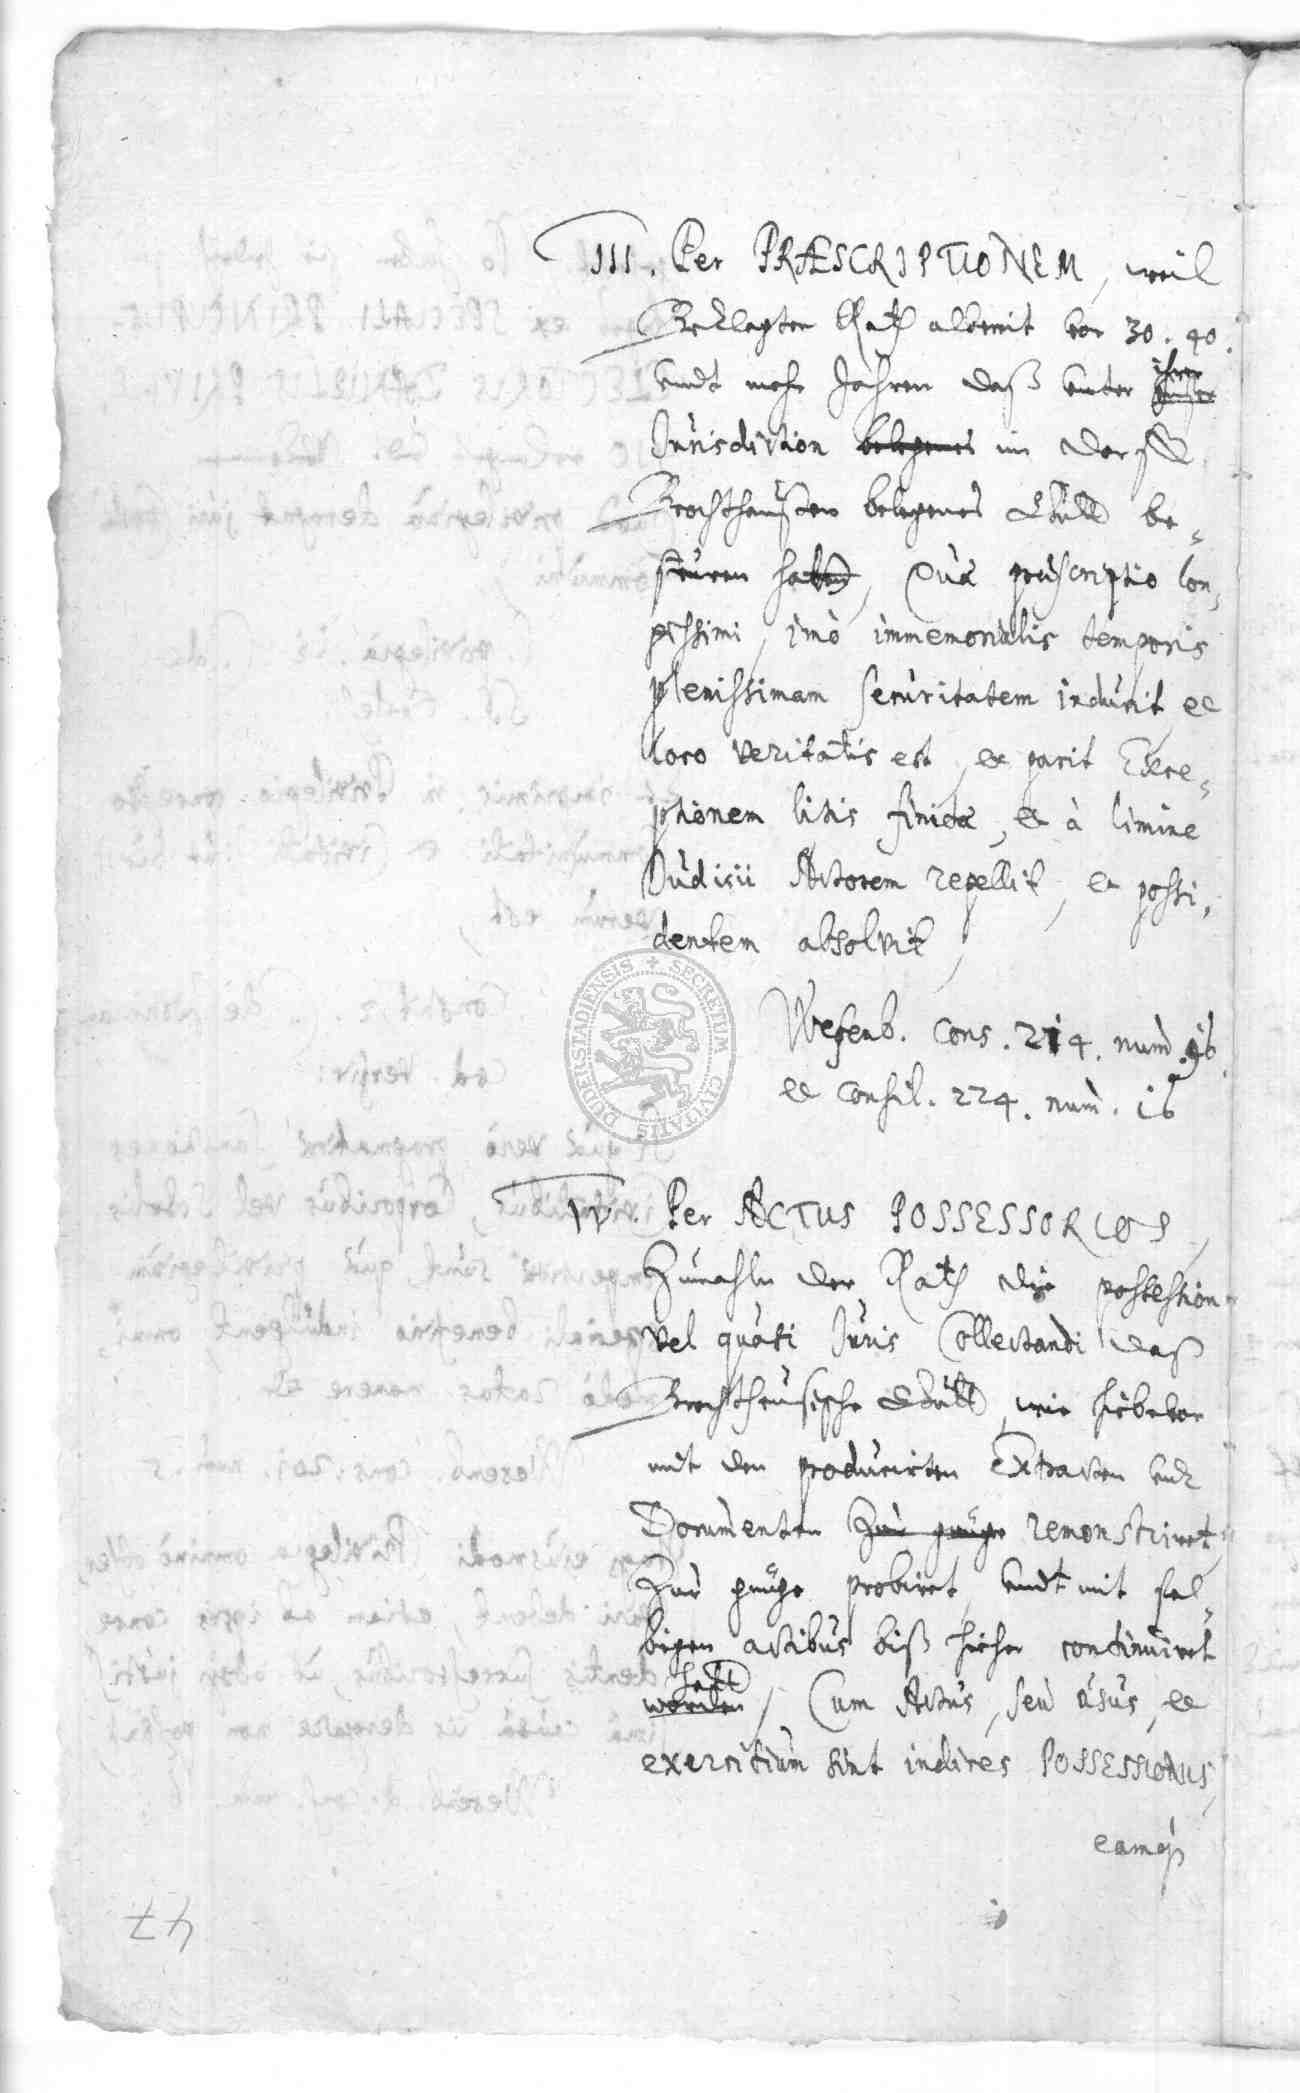 III. Per PRÆSCRIPTIONEM, weil
Beklagter Rath albereit vor 30. 40.
undt mehr Jahren daß unter ihrer unser
Jurisdiction belegenes im dorff
Brochthausen belegenes Guth be-
steuren haben, Quæ præscriptio lon-
gissimi, imò immemorialis temporis
plenissimam securitatem inducit, et
loco veritatis est, et parit Exce-
ptionem litis finitæ, et à limine
Judicii Actorem repellit, et possi-
dentem absolvit,
Wesenb. Cons. 214. num. 16.
et Consil. 224. num. 16
IV. Per ACTUS POSSESSORIOS,
Zumahln der Rath die possession
vel quasi Juris Collectandi daß
Brochtheusische Guth, wie hiebevor
mit den producirten Extracten undt
Documenten Zur gnüge remonstriret,
Zur gnüge probiret, undt mit sel-
bigen actibus biß hieher continuiret
hatt
worden, Cum Actus, seu usus, et
exercitium sint indices POSSESSIONIS,
eamq
47
SECRETUM CIVITATIS DUDERSTADIENSIS